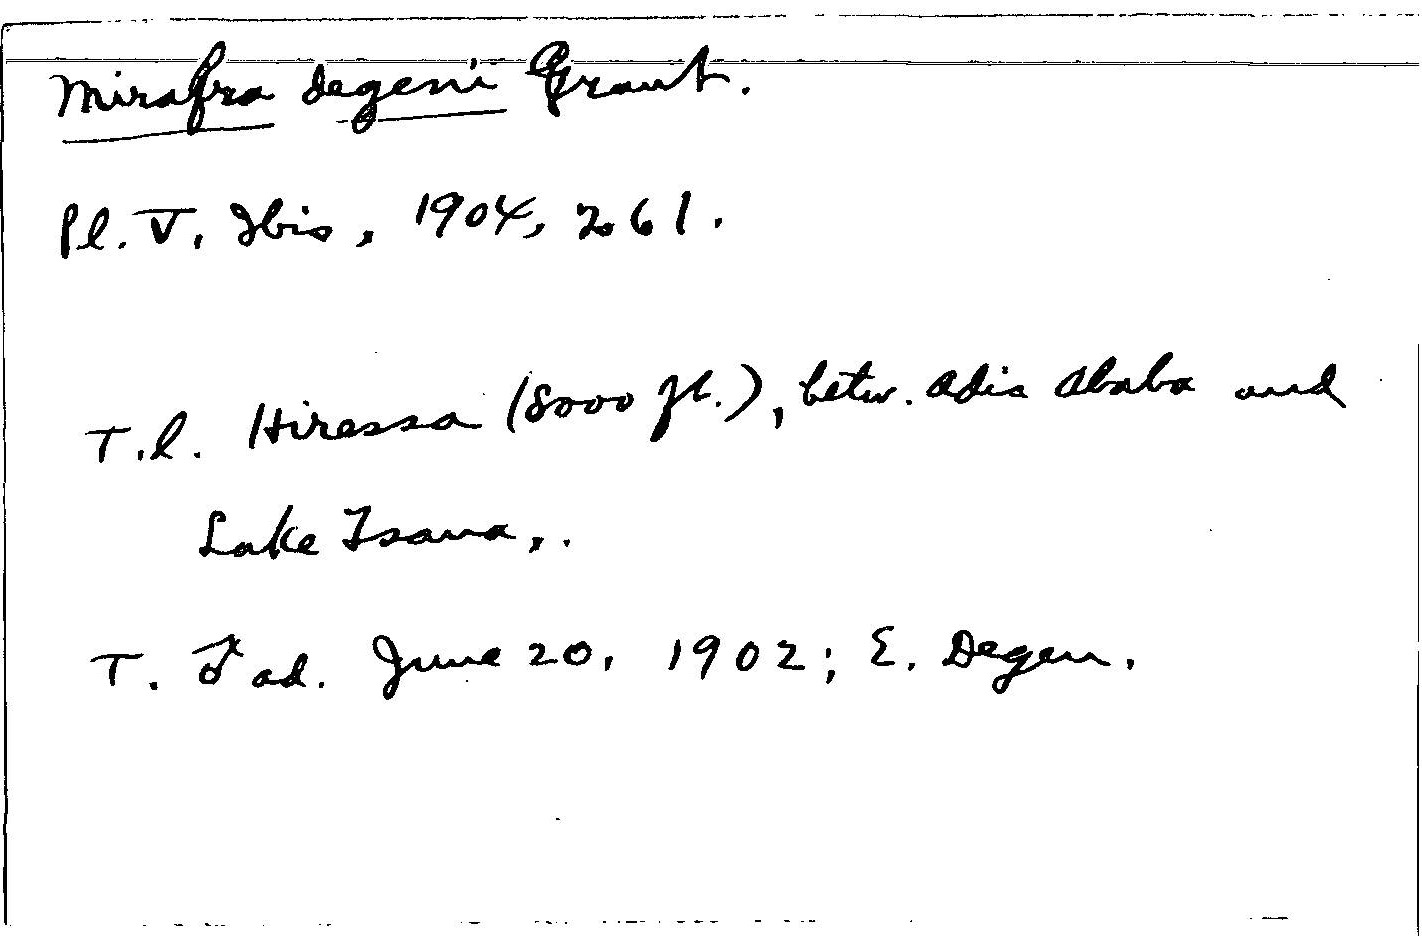 Mirafra degeni Grant.
Pl. V. Ibis, 1904, 261.
T.l. Hiressa (8000 ft.), betw. Adis Ababa and
Lake Tsana,.
T. ♂ ad. June 20, 1902; E. Degen.